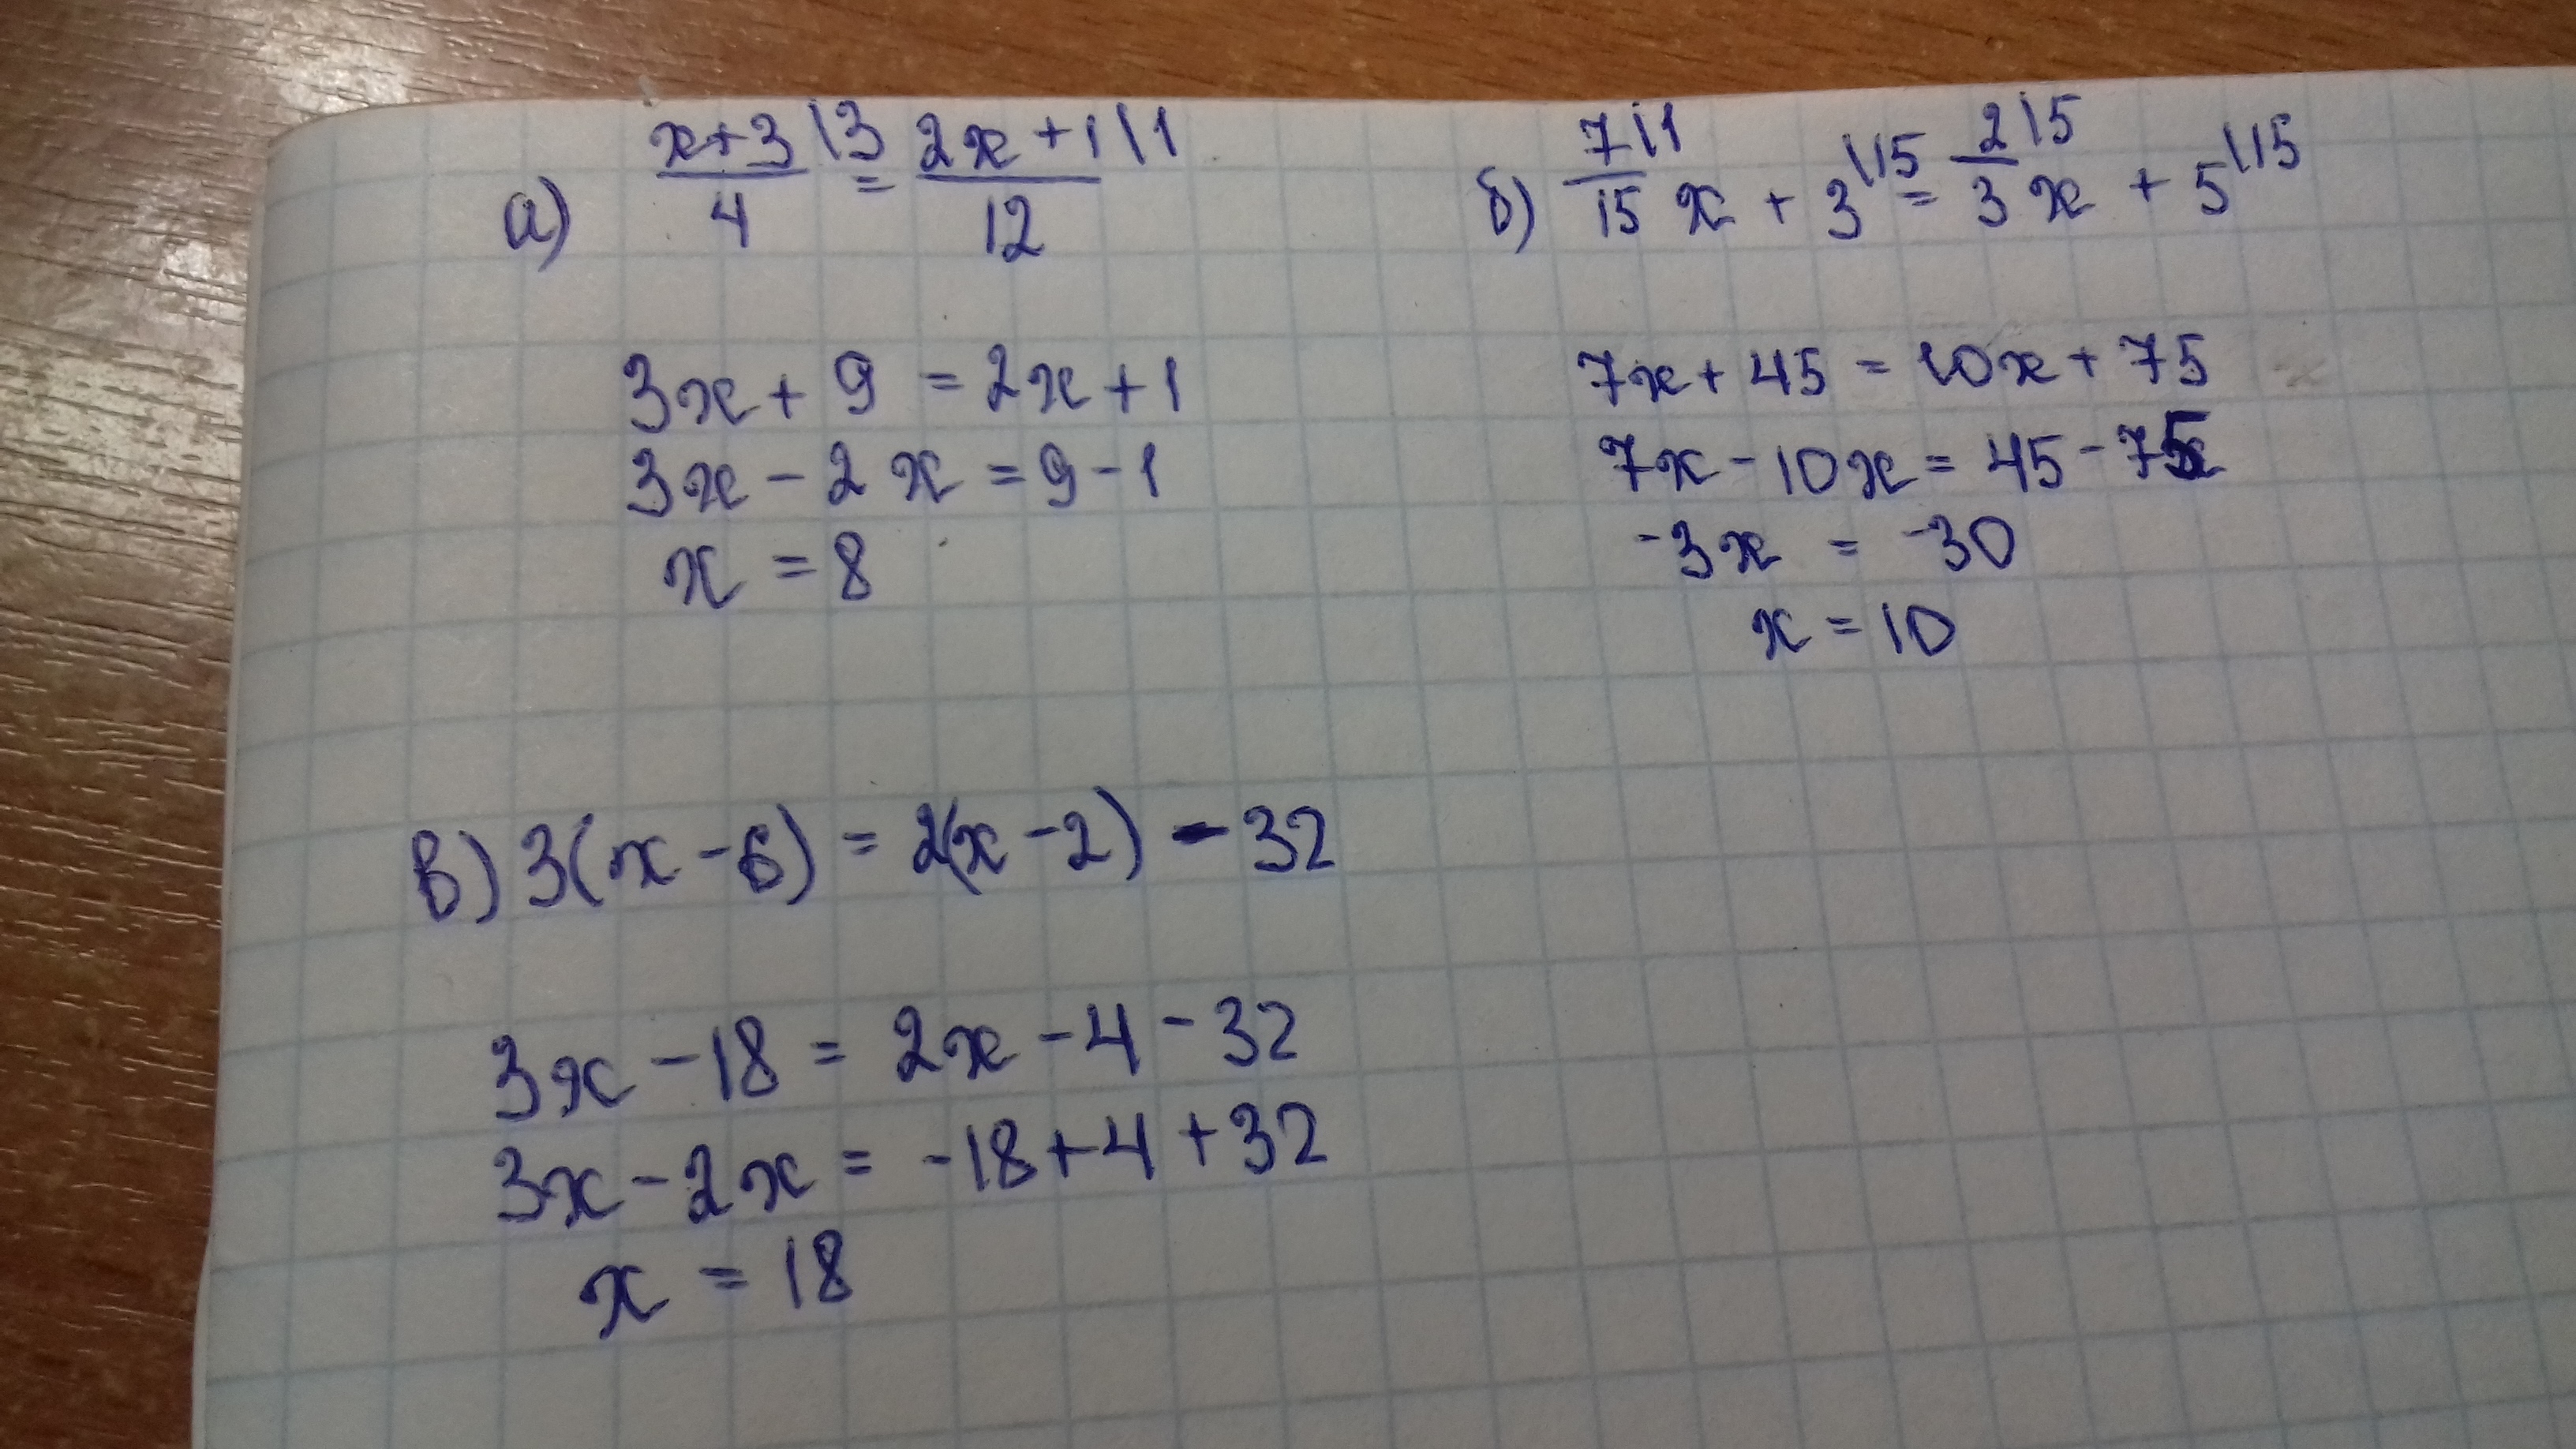 а) x+3\3 / 4 = 2x+1\1 / 12
3x+9 = 2x+1
3x-2x = 9-1
x = 8
б) 7\1 / 15 x + 3\15 = 2\5 / 3 x + 5\15
7x+45 = 10x+75
7x-10x = 45-75
-3x = -30
x = 10
в) 3(x-6) = 2(x-2) - 32
3x-18 = 2x-4-32
3x-2x = -18+4+32
x = 18